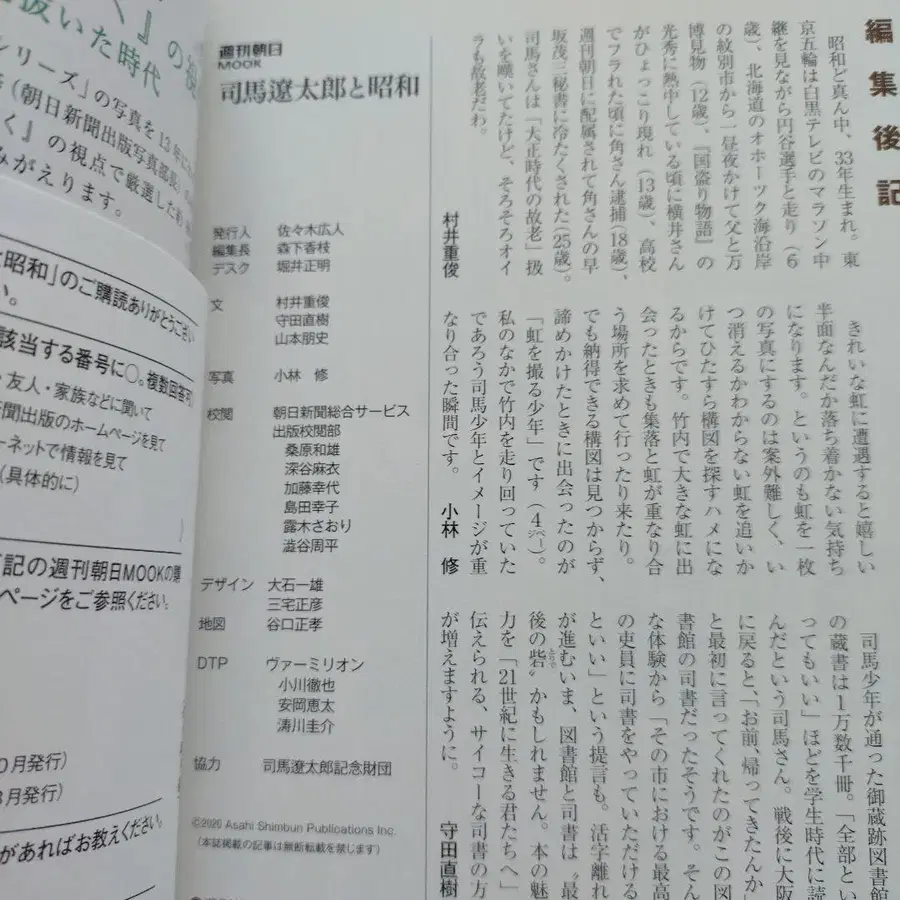 編集後記
昭和ど真ん中、33年生まれ。東
京五輪は白黒テレビのマラソン中
継を見ながら円谷選手と走り(6
歳)、北海道のオホーツク海沿岸
の紋別市から一昼夜かけて父と万
博見物(12歳)、『国盗り物語』の
光秀に熱中している頃に横井さん
がひょっこり現れ(13歳)、高校
でフラれた頃に角さん逮捕(18歳)、
週刊朝日に配属されて角さんの早
坂茂三秘書に冷たくされた(25歳)。
司馬さんは「大正時代の故老」扱
いを嘆いてたけど、そろそろオイ
ラも故老だわ。
村井重俊
きれいな虹に遭遇すると嬉しい
半面なんだか落ち着かない気持ち
になります。というのも虹を一枚
の写真にするのは案外難しく、い
つ消えるかわからない虹を追いか
けてひたすら構図を探すハメにな
るからです。竹内で大きな虹に出
会ったときも集落と虹が重なり合
う場所を求めて行ったり来たり。
でも納得できる構図は見つからず、
諦めかけたときに出会ったのが
「虹を撮る少年」です(4ページ)。
私のなかで竹内を走り回っていた
であろう司馬少年とイメージが重
なり合った瞬間です。
小林 修
司馬少年が通った御蔵跡図書館
の蔵書は1万数千冊。「全部とい
ってもいい」ほどを学生時代に読
んだという司馬さん。戦後に大阪
に戻ると、「お前、帰ってきたんか」
と最初に言ってくれたのがこの図
書館の司書だったそうです。そん
な体験から「その市における最高
の吏員に司書をやっていただける
といい」という提言も。活字離れ
が進むいま、図書館と司書は〝最
後の砦〟かもしれません。本の魅
力を「21世紀に生きる君たちへ」
伝えられる、サイコーな司書の方
が増えますように。
守田直樹
週刊朝日
MOOK
司馬遼太郎と昭和
発行人 佐々木広人
編集長 森下香枝
デスク 堀井正明
文 村井重俊
守田直樹
山本朋史
写真 小林 修
校閲 朝日新聞総合サービス
出版校閲部
桑原和雄
深谷麻衣
加藤幸代
島田幸子
露木さおり
澁谷周平
デザイン 大石一雄
三宅正彦
地図 谷口正孝
DTP ヴァーミリオン
小川徹也
安岡恵太
溝川圭介
協力 司馬遼太郎記念財団
©2020 Asahi Shimbun Publications Inc.
(本誌掲載の記事は無断転載を禁じます)
』の視
抜いた時代
シリーズ」の写真を13年に
(朝日新聞出版写真部長)
く』の視点で厳選した
みがえります。
昭和」のご購読ありがとうござい
い。
該当する番号に○。複数回答可
・友人・家族などに聞いて
聞出版のホームページを見て
ーネットで情報を見て
(具体的に)
記の週刊朝日MOOKの
ページをご参照ください。
0月発行)
月発行)
があればお教えください。